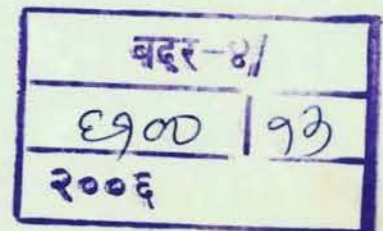 बदर-४/
६१०० | १३
२००६